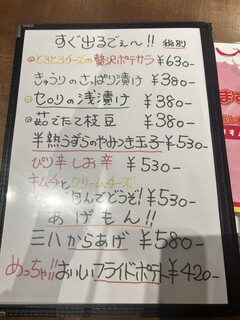 すぐ出るでぇ〜!! 税別
◎とろとろチーズの贅沢ポテサラ ¥630-
きゅうりのさっぱり漬け ¥380-
◎セロリの浅漬け ¥380-
◎茹でたて枝豆 ¥380-
半熟うずらのやみつき玉子 ¥530-
ぴり辛しお辛 ¥530-
キムチとクリームチーズ
包んでどうぞ! ¥530-
あげもん!!
三八からあげ ¥580-
めっちゃ!!おいしいフライドポテト ¥420-